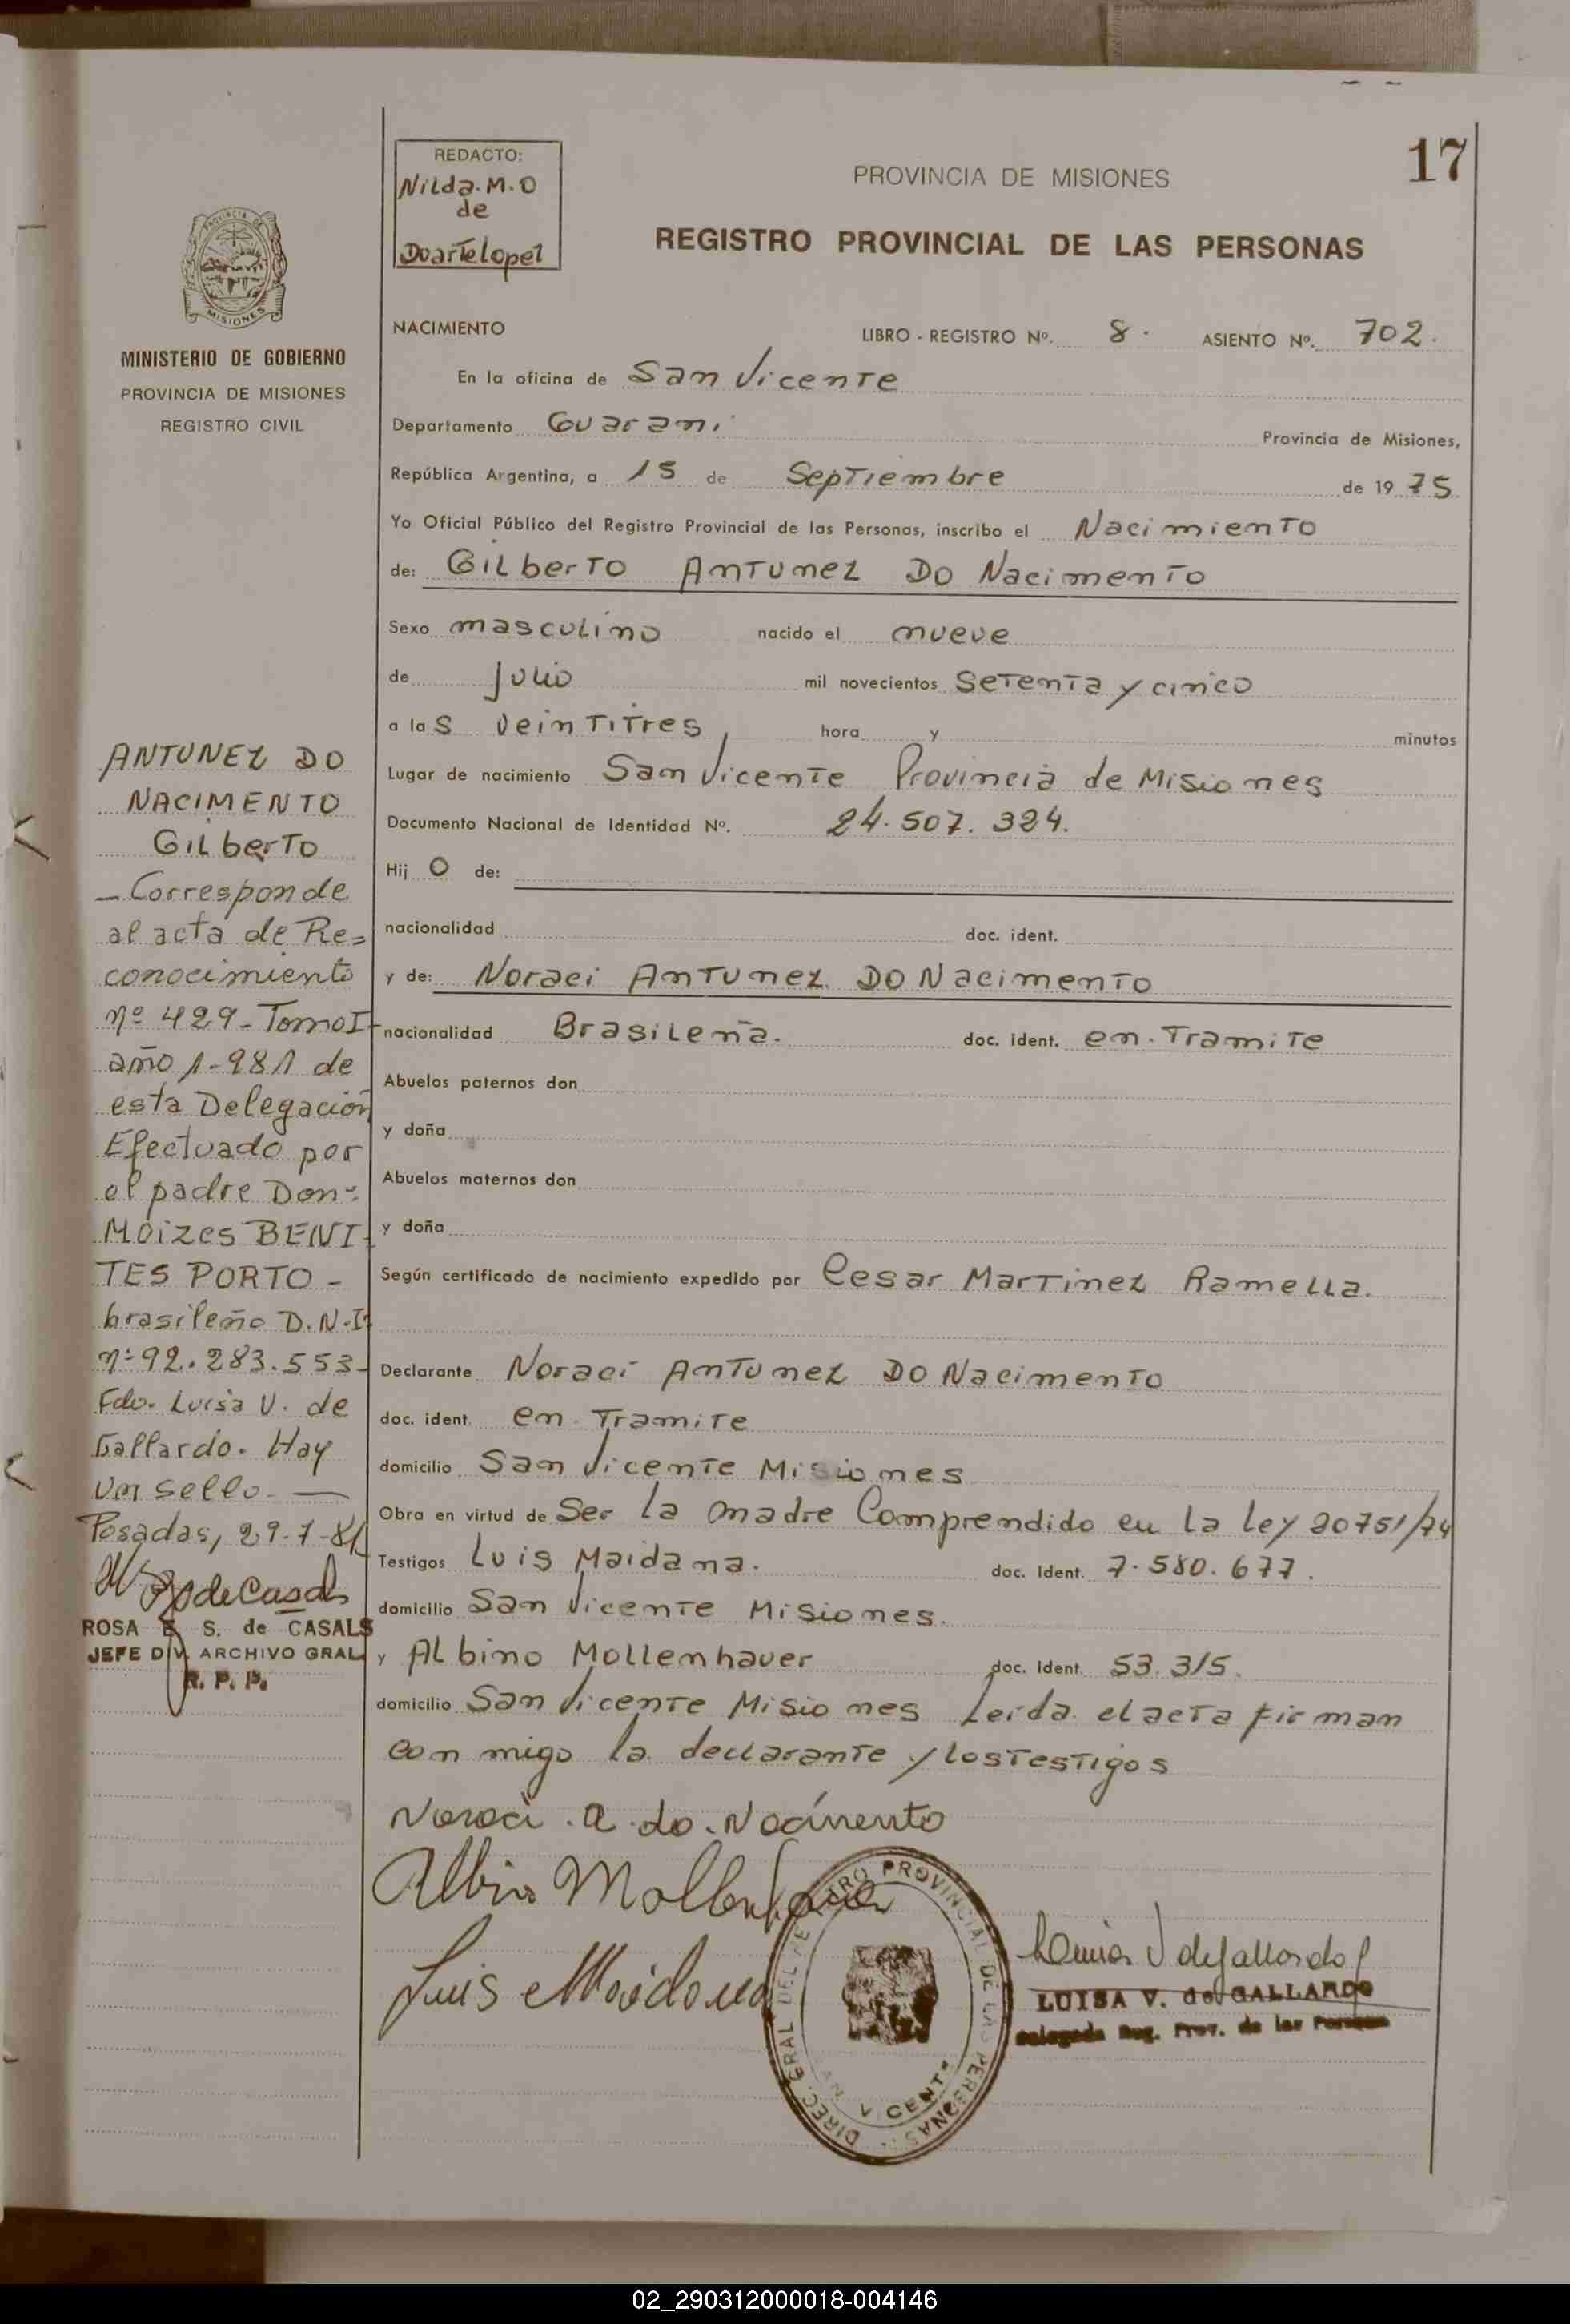 17
REDACTO:
Nilda. M. O
de
Duartelopez
PROVINCIA DE MISIONES
REGISTRO PROVINCIAL DE LAS PERSONAS
PROVINCIA DE
MISIONES
MINISTERIO DE GOBIERNO
PROVINCIA DE MISIONES
REGISTRO CIVIL
NACIMIENTO LIBRO - REGISTRO Nº. 8. ASIENTO Nº. 702.
En la oficina de San Vicente
Departamento Guarani Provincia de Misiones,
República Argentina, a 15 de Septiembre de 1975
Yo Oficial Público del Registro Provincial de las Personas, inscribo el Nacimiento
de: Gilberto Antunez Do Nacimento
Sexo masculino nacido el nueve
de julio mil novecientos Setenta y cinco
a las veintitres, hora y minutos
Lugar de nacimiento San Vicente Provincia de Misiones
Documento Nacional de Identidad Nº. 24.507.324.
Hijo de:
nacionalidad doc. ident.
y de: Noraci Antunez Do Nacimento
nacionalidad Brasileña. doc. ident. en. Tramite
Abuelos paternos don
y doña
Abuelos maternos don
y doña
Según certificado de nacimiento expedido por Cesar Martinez Ramella.
Declarante Noraci Antunez Do Nacimento
doc. ident. en Tramite
domicilio San Vicente Misiones
Obra en virtud de Ser la madre Comprendido en la ley 20751/74
Testigos Luis Maidana. doc. Ident. 7.580.677.
domicilio San Vicente Misiones.
y Albino Mollenhauer doc. Ident. 53.315.
domicilio San Vicente Misiones Leida el acta firman
con migo la declarante y los testigos
Noraci . a . do . Nacimento
Albino Mollenhauer
Luis Maidana
DIREC. GRAL DEL REGISTRO PROVINCIAL DE LAS PERSONAS
SAN VICENTE
Luisa V de Gallardo
LUISA V. de GALLARDO
Delegada Reg. Prov. de las Personas
ANTUNEZ DO
NACIMENTO
Gilberto
- Corresponde
al acta de Re=
conocimiento
nº 429 - Tomo I
año 1.981 de
esta Delegación
Efectuado por
el padre Don-
Moizes BENI-
TES PORTO -
brasileño D.N.I.
nº 92.283.553-
Fdo. Luisa V. de
Gallardo. Hay
un sello. —
Posadas, 29-7-81
ROSA E. S. de CASALS
JEFE DIV. ARCHIVO GRAL
R. P. P.
02_290312000018-004146